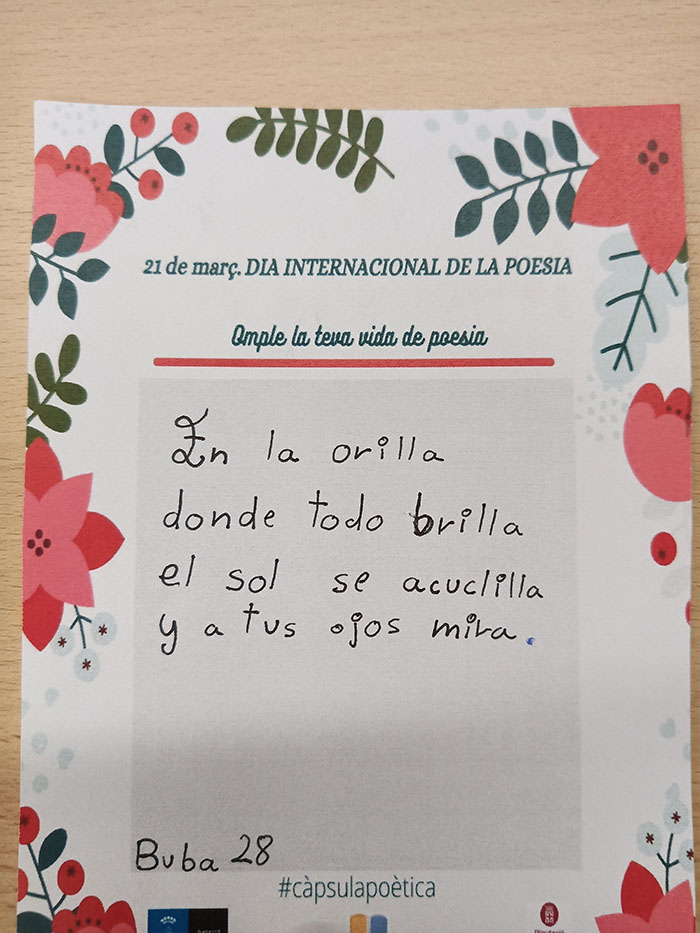 21 de març. DIA INTERNACIONAL DE LA POESIA
Omple la teva vida de poesia
En la orilla
donde todo brilla
el sol se acuclilla
y a tus ojos mira.
Buba 28
#càpsulapoètica